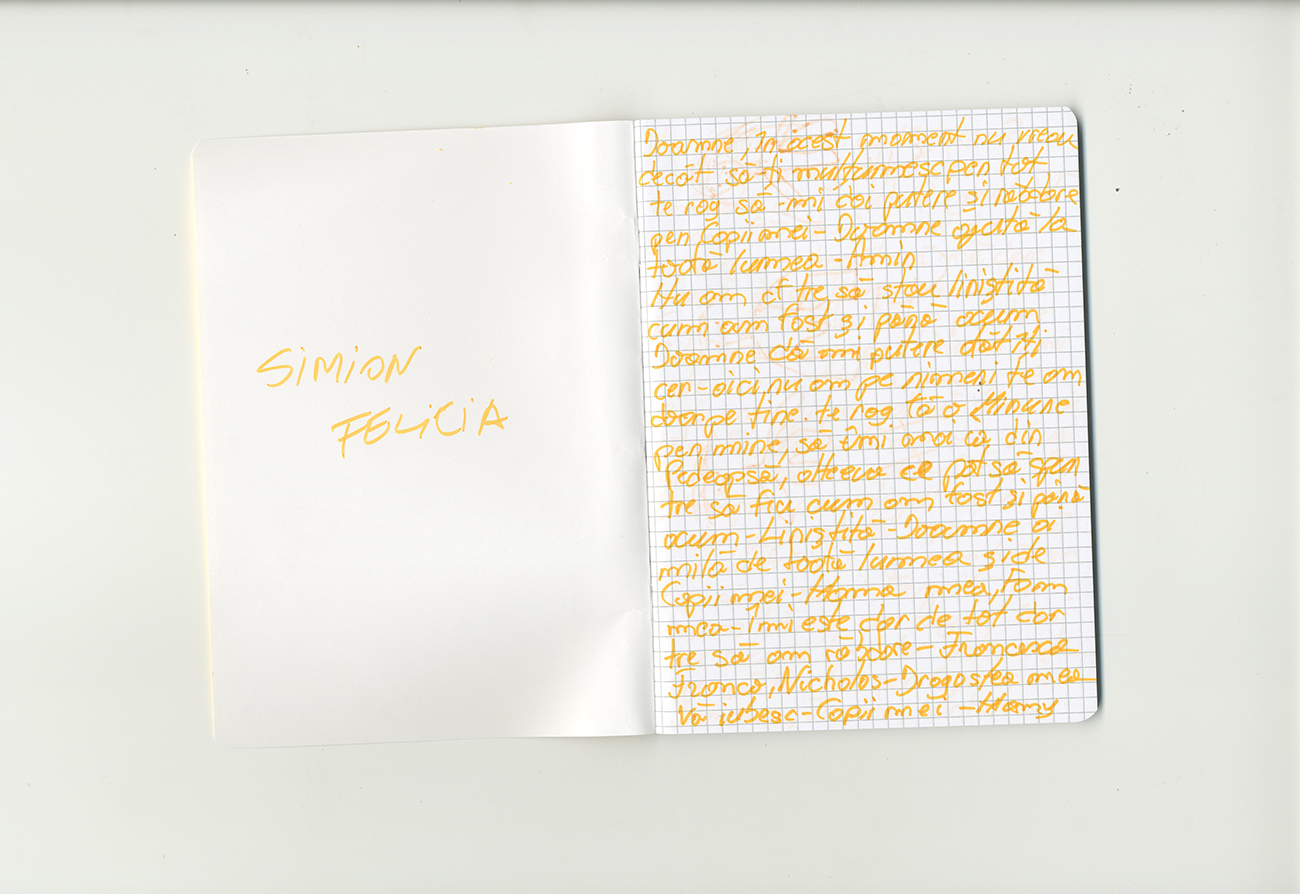 SIMION
FELICIA
Doamne, în acest moment nu vreau
decât să-ți mulțumesc pen tot
te rog să-mi dai putere și răbdare
pen Copii mei - Doamne ajută la
toată lumea - Amin
Nu am cf tre să stau liniștită
cum am fost și până acum
Doamne dă-mi putere atât îți
cer - aici nu am pe nimeni te am
doar pe tine. te rog fă o Minune
pen mine, să îmi din
Pedeapsă, altceva ce pot să spun
tre să fiu cum am fost și până
acum - Liniștită - Doamne ai
milă de toată lumea și de
Copii mei - Mama mea, Fam
mea - Îmi este dor de tot dar
tre să am răbdare - Francesca
Franco, Nicholas - Dragostea mea
Vă iubesc - Copii mei - Mamy